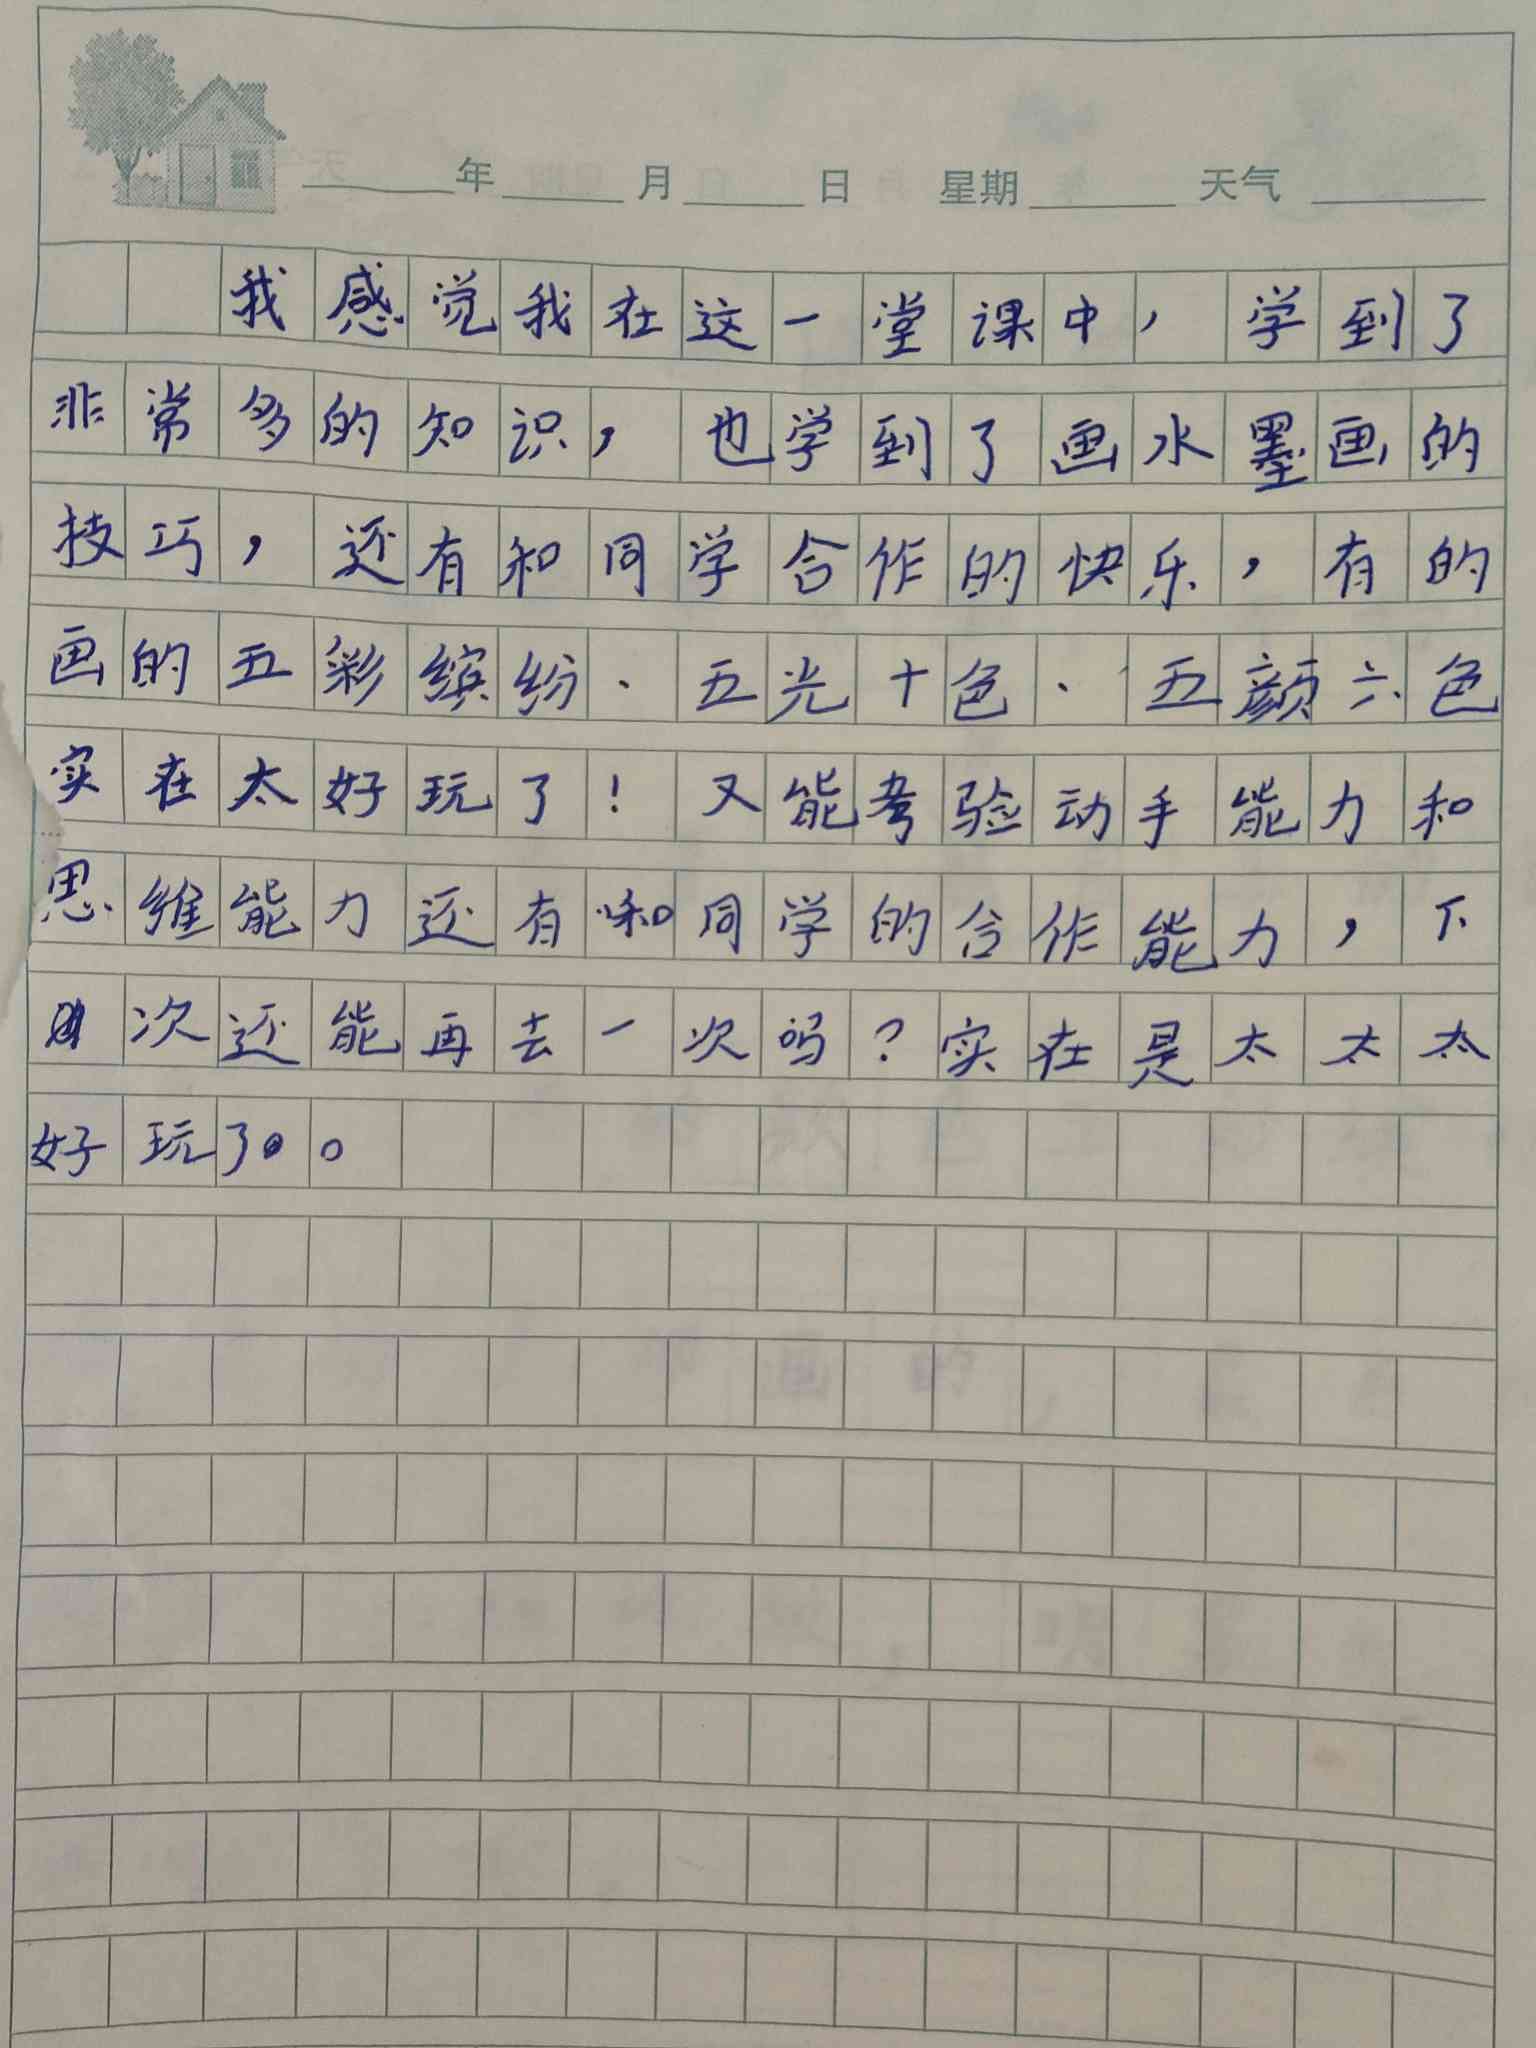 年 月 日 星期 天气
我感觉我在这一堂课中，学到了
非常多的知识，也学到了画水墨画的
技巧，还有和同学合作的快乐，有的
画的五彩缤纷、五光十色、五颜六色
实在太好玩了！又能考验动手能力和
思维能力还有和同学的合作能力，下
次还能再去一次吗？实在是太太太
好玩了。